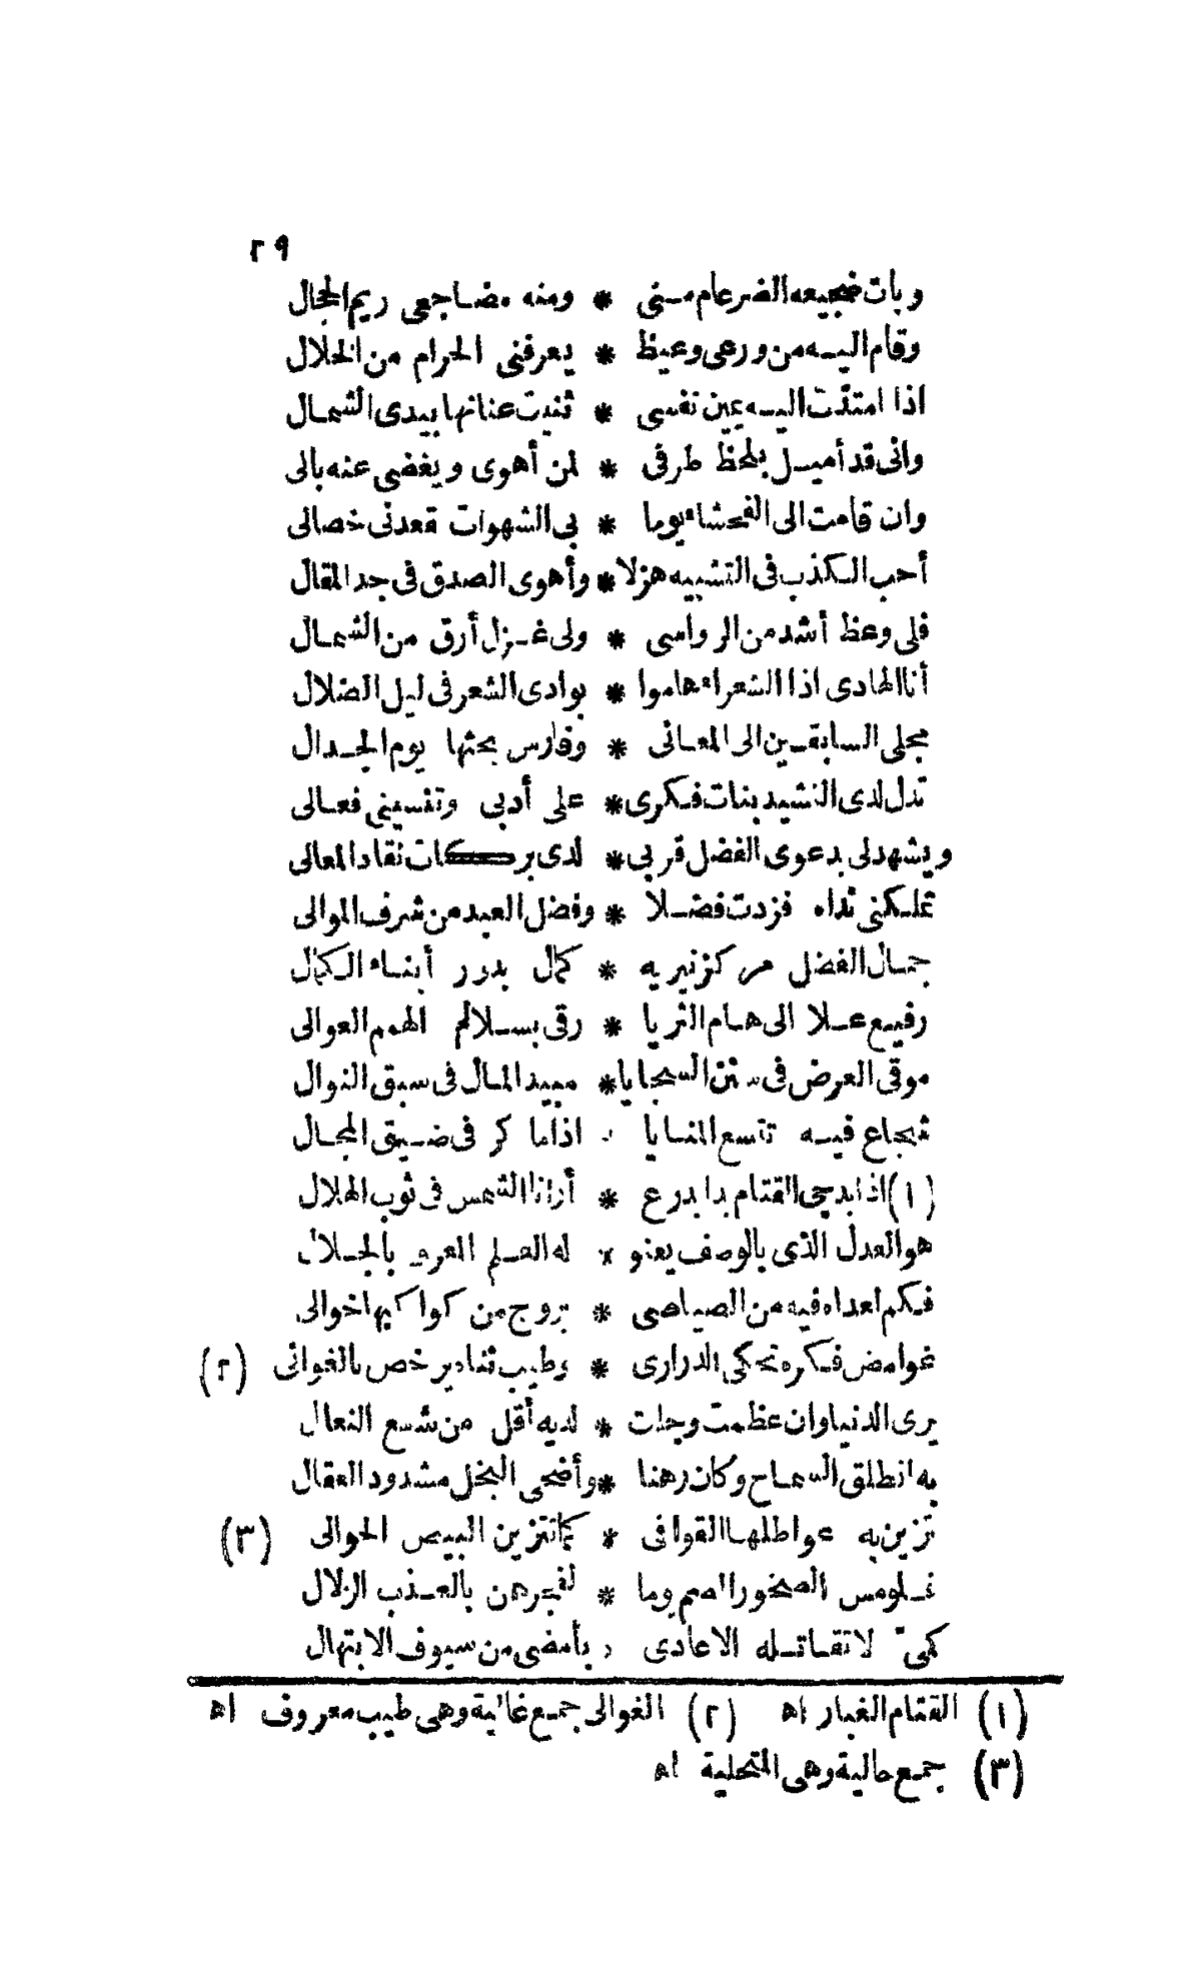 ٢٩
وبات ضجيعه الضرغام مسنى * ومنه مضاجعى ريم الحجال
وقام اليه من ورعى وعيظ * يعرفنى الحرام من الحلال
اذا امتدّت اليه يمين نفسى * ثنيت عنانها بيدى الشمال
وانى قد أميل بلحظ طرفى * لمن أهوى ويغضى عنه بالى
وان قامت الى الفحشاء يوما * بى الشهوات قعدنى خصالى
أحب الكذب فى التشبيه هزلا * وأهوى الصدق فى جد المقال
فلى وعظ أشد من الرواسى * ولى غزل أرق من الشمال
أنا الهادى اذا الشعراء هاموا * بوادى الشعر فى ليل الضلال
مجلى السابقين الى المعانى * وفارس بحثها يوم الجدال
تدل لدى النشيد بنات فكرى * على أدبى وتنسينى فعالى
ويشهد لى بدعوى الفضل قربى * لدى بركات نقاد المعالى
تملكنى نداه فزدت فضلا * وفضل العبد من شرف الموالى
جمال الفضل مركز نيريه * كمال بدور أبناء الكمال
رفيع علا الى هام الثريا * رقى بسلالم الهمم العوالى
موقى العرض فى سنن السجايا * مبيد المال فى سبق النوال
شجاع فيه تتسع المنايا * اذا ما كر فى ضيق المجال
(١) اذا بدجى القتام بدا بدرع * أرانا الشمس فى ثوب الهلال
هو العدل الذى بالوصف يعنو * له العلم المعرف بالجلال
فكم لعداه فيه من الصياصى * بروج من كواكبها خوالى
غوامض فكره تحكى الدرارى * وطيب ثناه يرخص بالغوانى (٢)
يرى الدنيا وان عظمت وجلت * لديه أقل من شسع النعال
به انطلق السماح وكان رهنا * وأضحى البخل مشدود العقال
تزين به عواطلها القوافى * كما تتزين البيض الحوالى (٣)
فلو مس الصخور الصم يوما * لفجرهن بالعذب الزلال
كمىّ لا تقاتله الاعادى * بأمضى من سيوف الابتهال
(١) القتام الغبار اه (٢) الغوالى جمع غالية وهى طيب معروف اه
(٣) جمع حالية وهى المتحلية اه